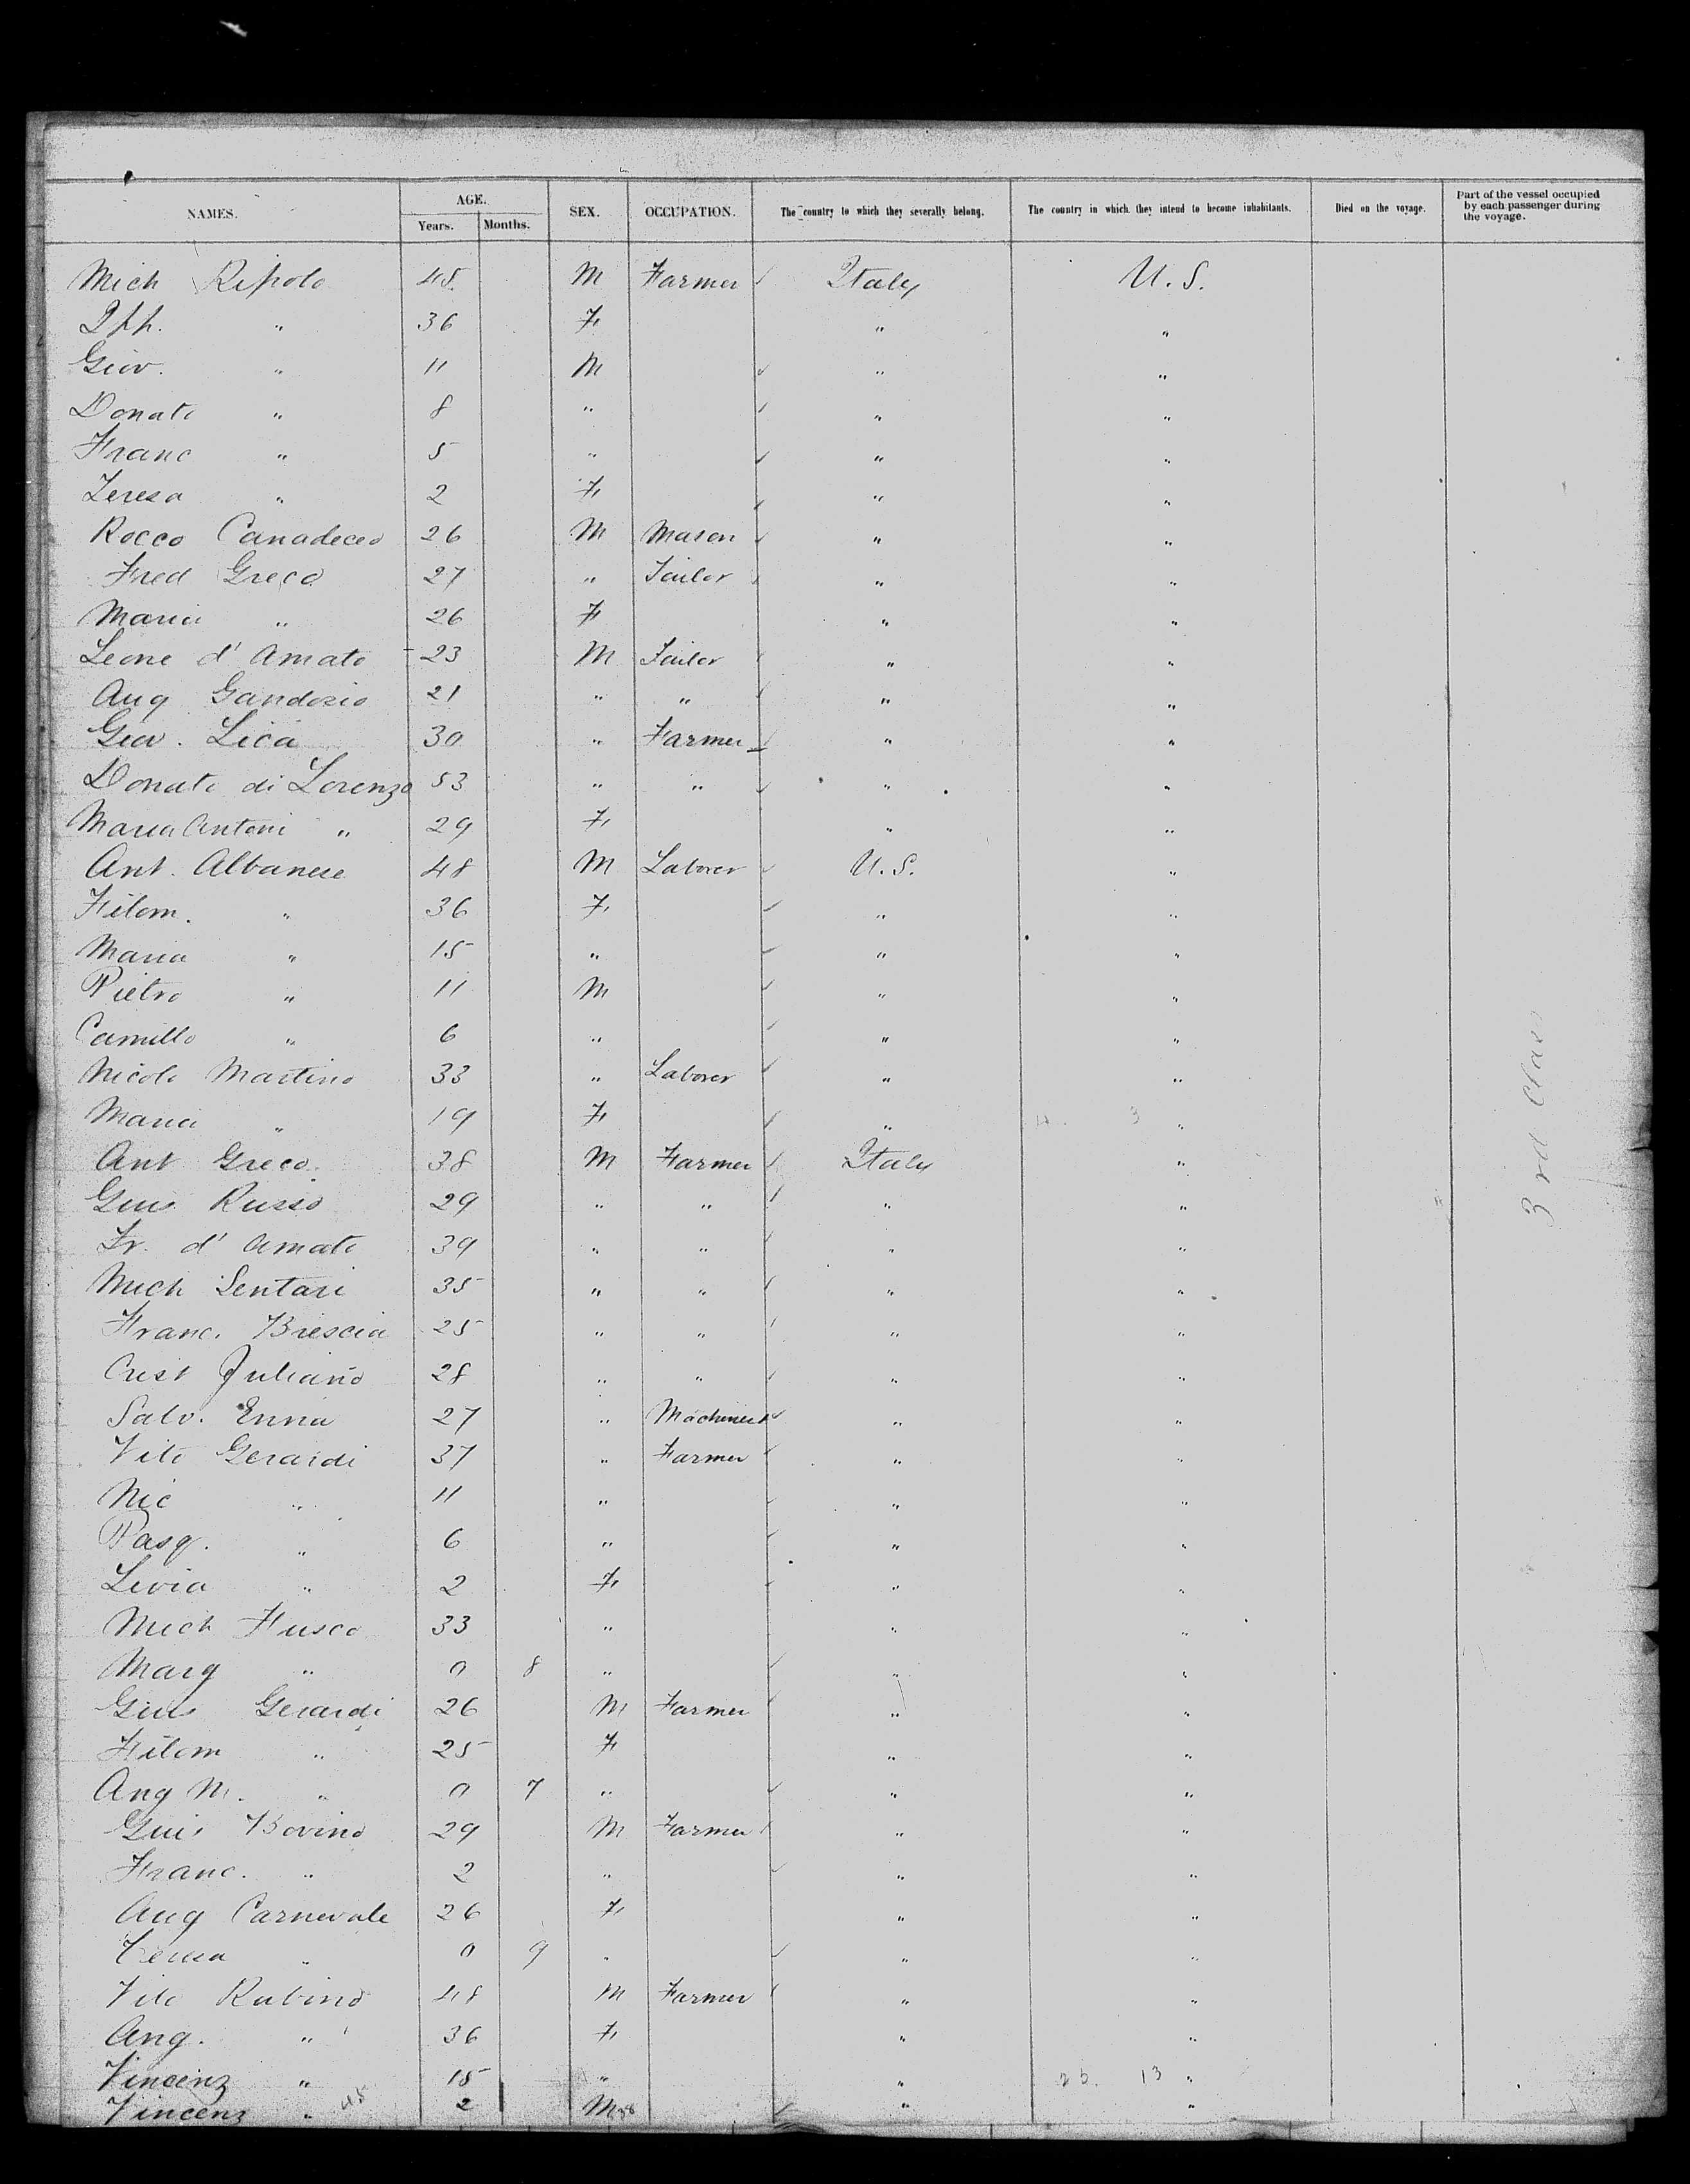 NAMES. AGE. Years. Months. SEX. OCCUPATION. The country to which they severally belong. The country in which they intend to become inhabitants. Died on the voyage. Part of the vessel occupied by each passenger during the voyage.
Mich Ripolo 45 M Farmer Italy U.S.
" 36 F " "
Giov. " 11 M " "
Donato " 8 " " "
Franc " 5 " " "
Teresa " 2 F " "
Rocco Canadeceo 26 M Mason " "
Fred Greco 27 " Tailor " "
Maria " 26 F " "
Leone d'Amato 23 M Tailor " "
Aug Gandosio 21 " " " "
Giov. Lica 30 " Farmer " "
Donato di Lorenzo 53 " " " "
Maria Antoni " 29 F " "
Ant. Albanese 48 M Laborer U.S. "
Filom. " 36 F " "
Maria " 15 " " "
Pietro " 11 M " "
Camillo " 6 " " "
Nicolo Martino 33 " Laborer " "
Maria " 19 F " "
Ant Greco 38 M Farmer Italy "
Gius Russo 29 " " " "
Fr. d'Amato 39 " " " "
Mich Sentari 35 " " " "
Franc. Brescia 25 " " " "
Crist Juliano 28 " " " "
Salv. Enna 27 " Machinist " "
Vito Gerardi 37 " Farmer " "
Nic " 11 " " "
Pasq. " 6 " " "
Livia " 2 F " "
Mich Fusco 33 " " "
Marg " 0 8 " " "
Gius Gerardi 26 M Farmer " "
Filom " 25 F " "
Ang M. " 0 7 " " "
Gius Bovino 29 M Farmer " "
Franc. " 2 " " "
Aug Carnevale 26 F " "
" 0 9 " " "
Vito Rubino 48 M Farmer " "
Ang. " 36 F " "
Vincenz " 15 " " "
Vincenz " 2 M " "
3rd Class